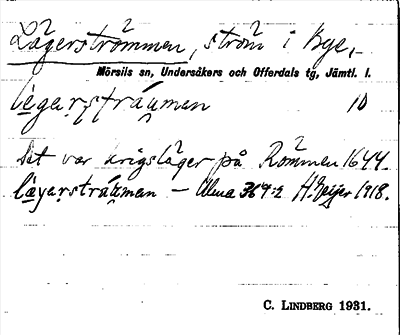 Lägerströmmen, ström i Bye,
Mörsils sn, Undersåkers och Offerdals tg, Jämtl. l.
lègạrs̥trä́u̯man 10
Det var krigsläger på Römmen 1644.
lǽgạrsträ́u̯man – Ulma 364:2 H. Geijer 1918.
C. LINDBERG 1931.